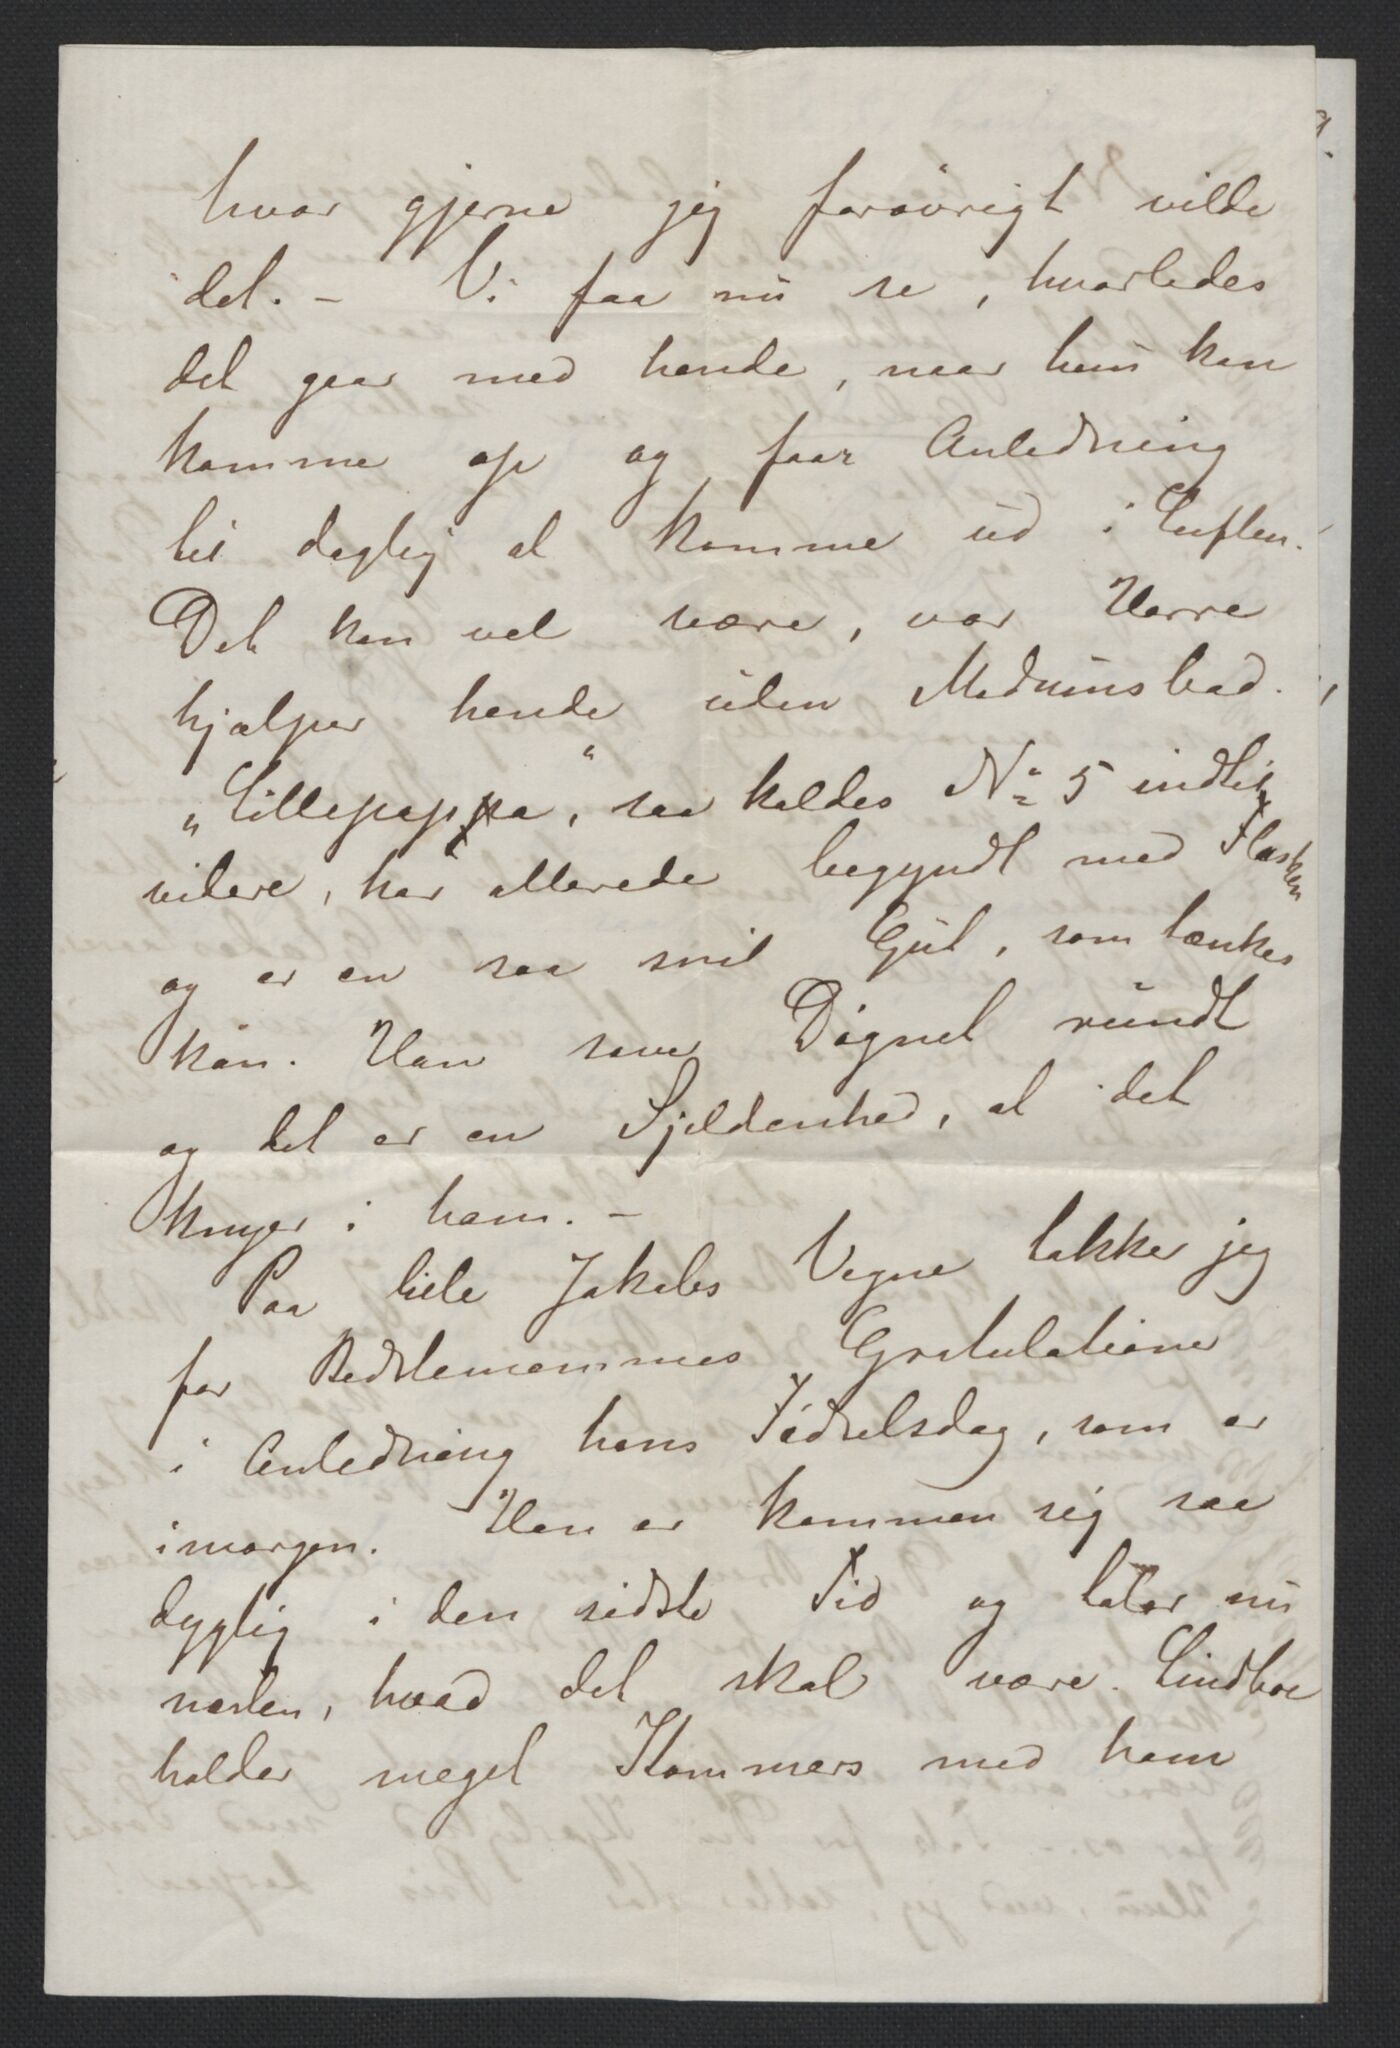 hvor gjerne jeg forøvrigt vilde
det. – Vi faa nu se, hvorledes
det gaar med hende, naar hun kan
komme op og faar Anledning
til daglig at komme ud i Luften.
Det kan vel være, vor Herre
hjælper hende uden Modumsbad.
„Lillepappa“, saa kaldes No 5 indtil
videre, har allerede begyndt med Flasken
og er en saa snil Gut, som tænkes
kan. Han sover Døgnet rundt
og det er en Sjeldenhed, at det
knyer i ham. –
Paa lille Jakobs Vegne takker jeg
for Bedstemammas Gratulationer
i Anledning hans Fødselsdag, som er
imorgen. Han er kommen sig saa
dygtig i den sidste Tid og taler nu
næsten, hvad det skal være. Lindboe
holder meget Kommers med ham